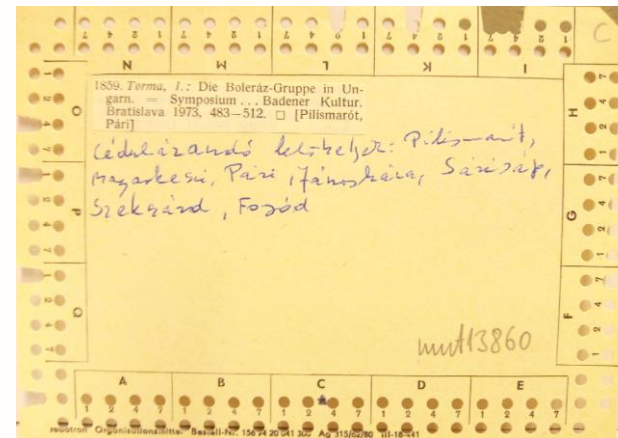 C
N M L K I
1859. Torma, I.: Die Boleráz-Gruppe in Un-
garn. = Symposium ... Badener Kultur.
Bratislava 1973, 483—512. □ [Pilismarót,
Pári]
Cédulázandó lelőhelyek: Pilismarót,
Magyarkeszi, Pári, Jánosháza, Sárisáp,
Szekszárd, Fogód
mut13860
O
P
Q
H
G
F
A B C D E
1 2 4 7 1 2 4 7 1 2 4 7 1 2 4 7 1 2 4 7
Organisationsmittel Bestell-Nr. Ag 315/62/80